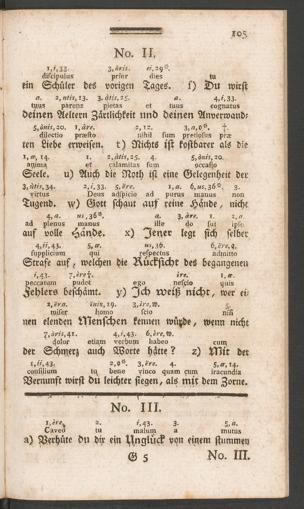 105
No. II.
1, i, 33. 3, äris. ei, 29⁰.
discipulus prior dies tu
ein Schüler des vorigen Tages. s) Du wirst
a. 2, ntis, 13. 3, âtis, 25. a. 4, i, 33.
tuus parens pietas et tuus cognatus
deinen Aeltern Zärtlichkeit und deinen Anverwand⸗
5, ônis, 20. 1, âre. 2, 12. 3, a, o⁰. †.
dilectio præsto nihil sum pretiosus præ
ten Liebe erweisen. t) Nichts ist kostbarer als die
1, æ, 14. 1. 2, âtis, 25. 4. 5, ônis, 20.
anima et calamitas sum occasio
Seele. u) Auch die Noth ist eine Gelegenheit der
3, ûtis, 34. 2, i, 33. 5, ëre. 1, a. 6, us, 36⁰. 3.
virtus Deus adspicio ad purus manus non
Tugend. w) Gott schaut auf reine Hände, nicht
4, a. us, 36⁰. a. 3, äre. 1. 2, a.
ad plenus manus ille do sui ipse
auf volle Hände. x) Jener legt sich selber
4, ii, 43. 5, æ. us, 36. 6, ëre, q.
supplicium qui respectus admitto
Strafe auf, welchen die Rücksicht des begangenen
i, 43. 7, ëre. ire. 1, æ.
peccatum pudet ego nescio quis
Fehlers beschämt. y) Ich weiß nicht, wer ei⸗
2, ëra. inis, 19. 3, ire, w. 5.
miser homo scio nisi
nen elenden Menschen kennen würde, wenn nicht
7, ôris, 41. 4, i, 43. 6, ëre, w.
dolor etiam verbum habeo cum
der Schmerz auch Worte hätte? z) Mit der
1, ii, 43. 2, o⁰. 3, ëre. 4. 5, æ, 14.
consilium tu bene vinco quam cum iracundia
Vernunft wirst du leichter siegen, als mit dem Zorne.
No. III.
1, ëre, 2. i, 43. 3. 5, a.
Caveo tu malum a mutus
a) Verhüte du dir ein Unglück von einem stummen
G 5 No. III.